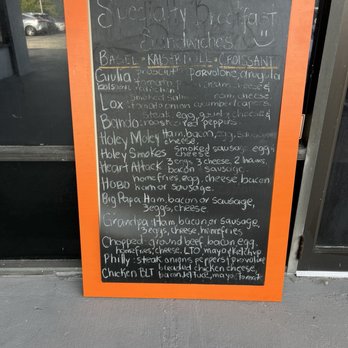 Specialty Breakfast
Sandwiches
BAGEL · KAISER ROLL · CROISSANT
Giulia prosciutto, provolone, arugula
ham cheese
Lox tomato onion cucumber capers
steak, egg, gouda cheese &
Bando roasted red peppers.
Holey Moley Ham, bacon, egg, sausage
cheese
Holey Smokes smoked sausage eggs
cheese
Heart Attack 3 eggs 3 cheese, 2 hams,
bacon sausage.
Hobo homefries, egg, cheese bacon
ham or sausage.
Big Papa Ham bacon or sausage,
3 eggs, cheese.
Grandpa Ham bacon or sausage,
3 eggs, cheese, homefries
Chopped: ground beef bacon, egg,
homefries, cheese, LTO, mayo/ketchup
Philly: steak onions peppers & provolone
Chicken BLT breaded chicken cheese,
bacon, lettuce, mayo, tomato